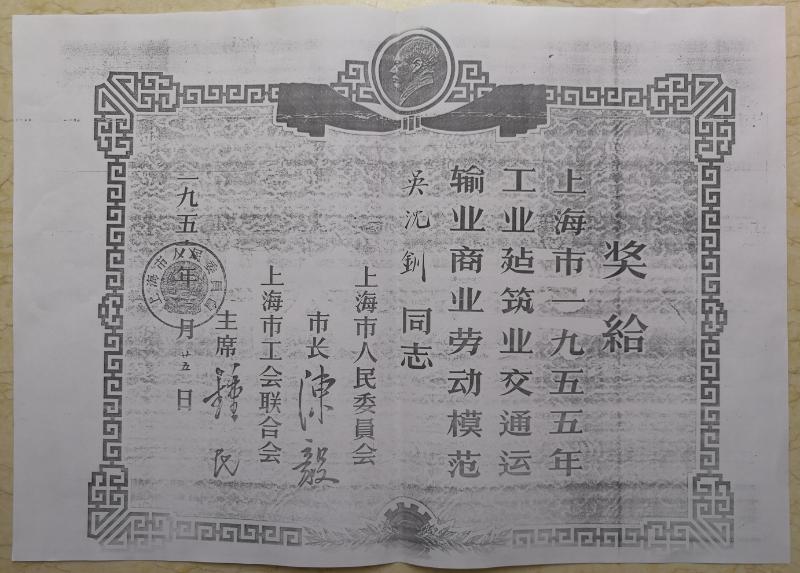 奖給
上海市一九五五年
工业建筑业交通运
输业商业劳动模范
吴沈釧 同志
上海市人民委員会
市长 陳毅
上海市工会联合会
主席 鍾民
一九五 年 月廿五日
上海市人民委員会